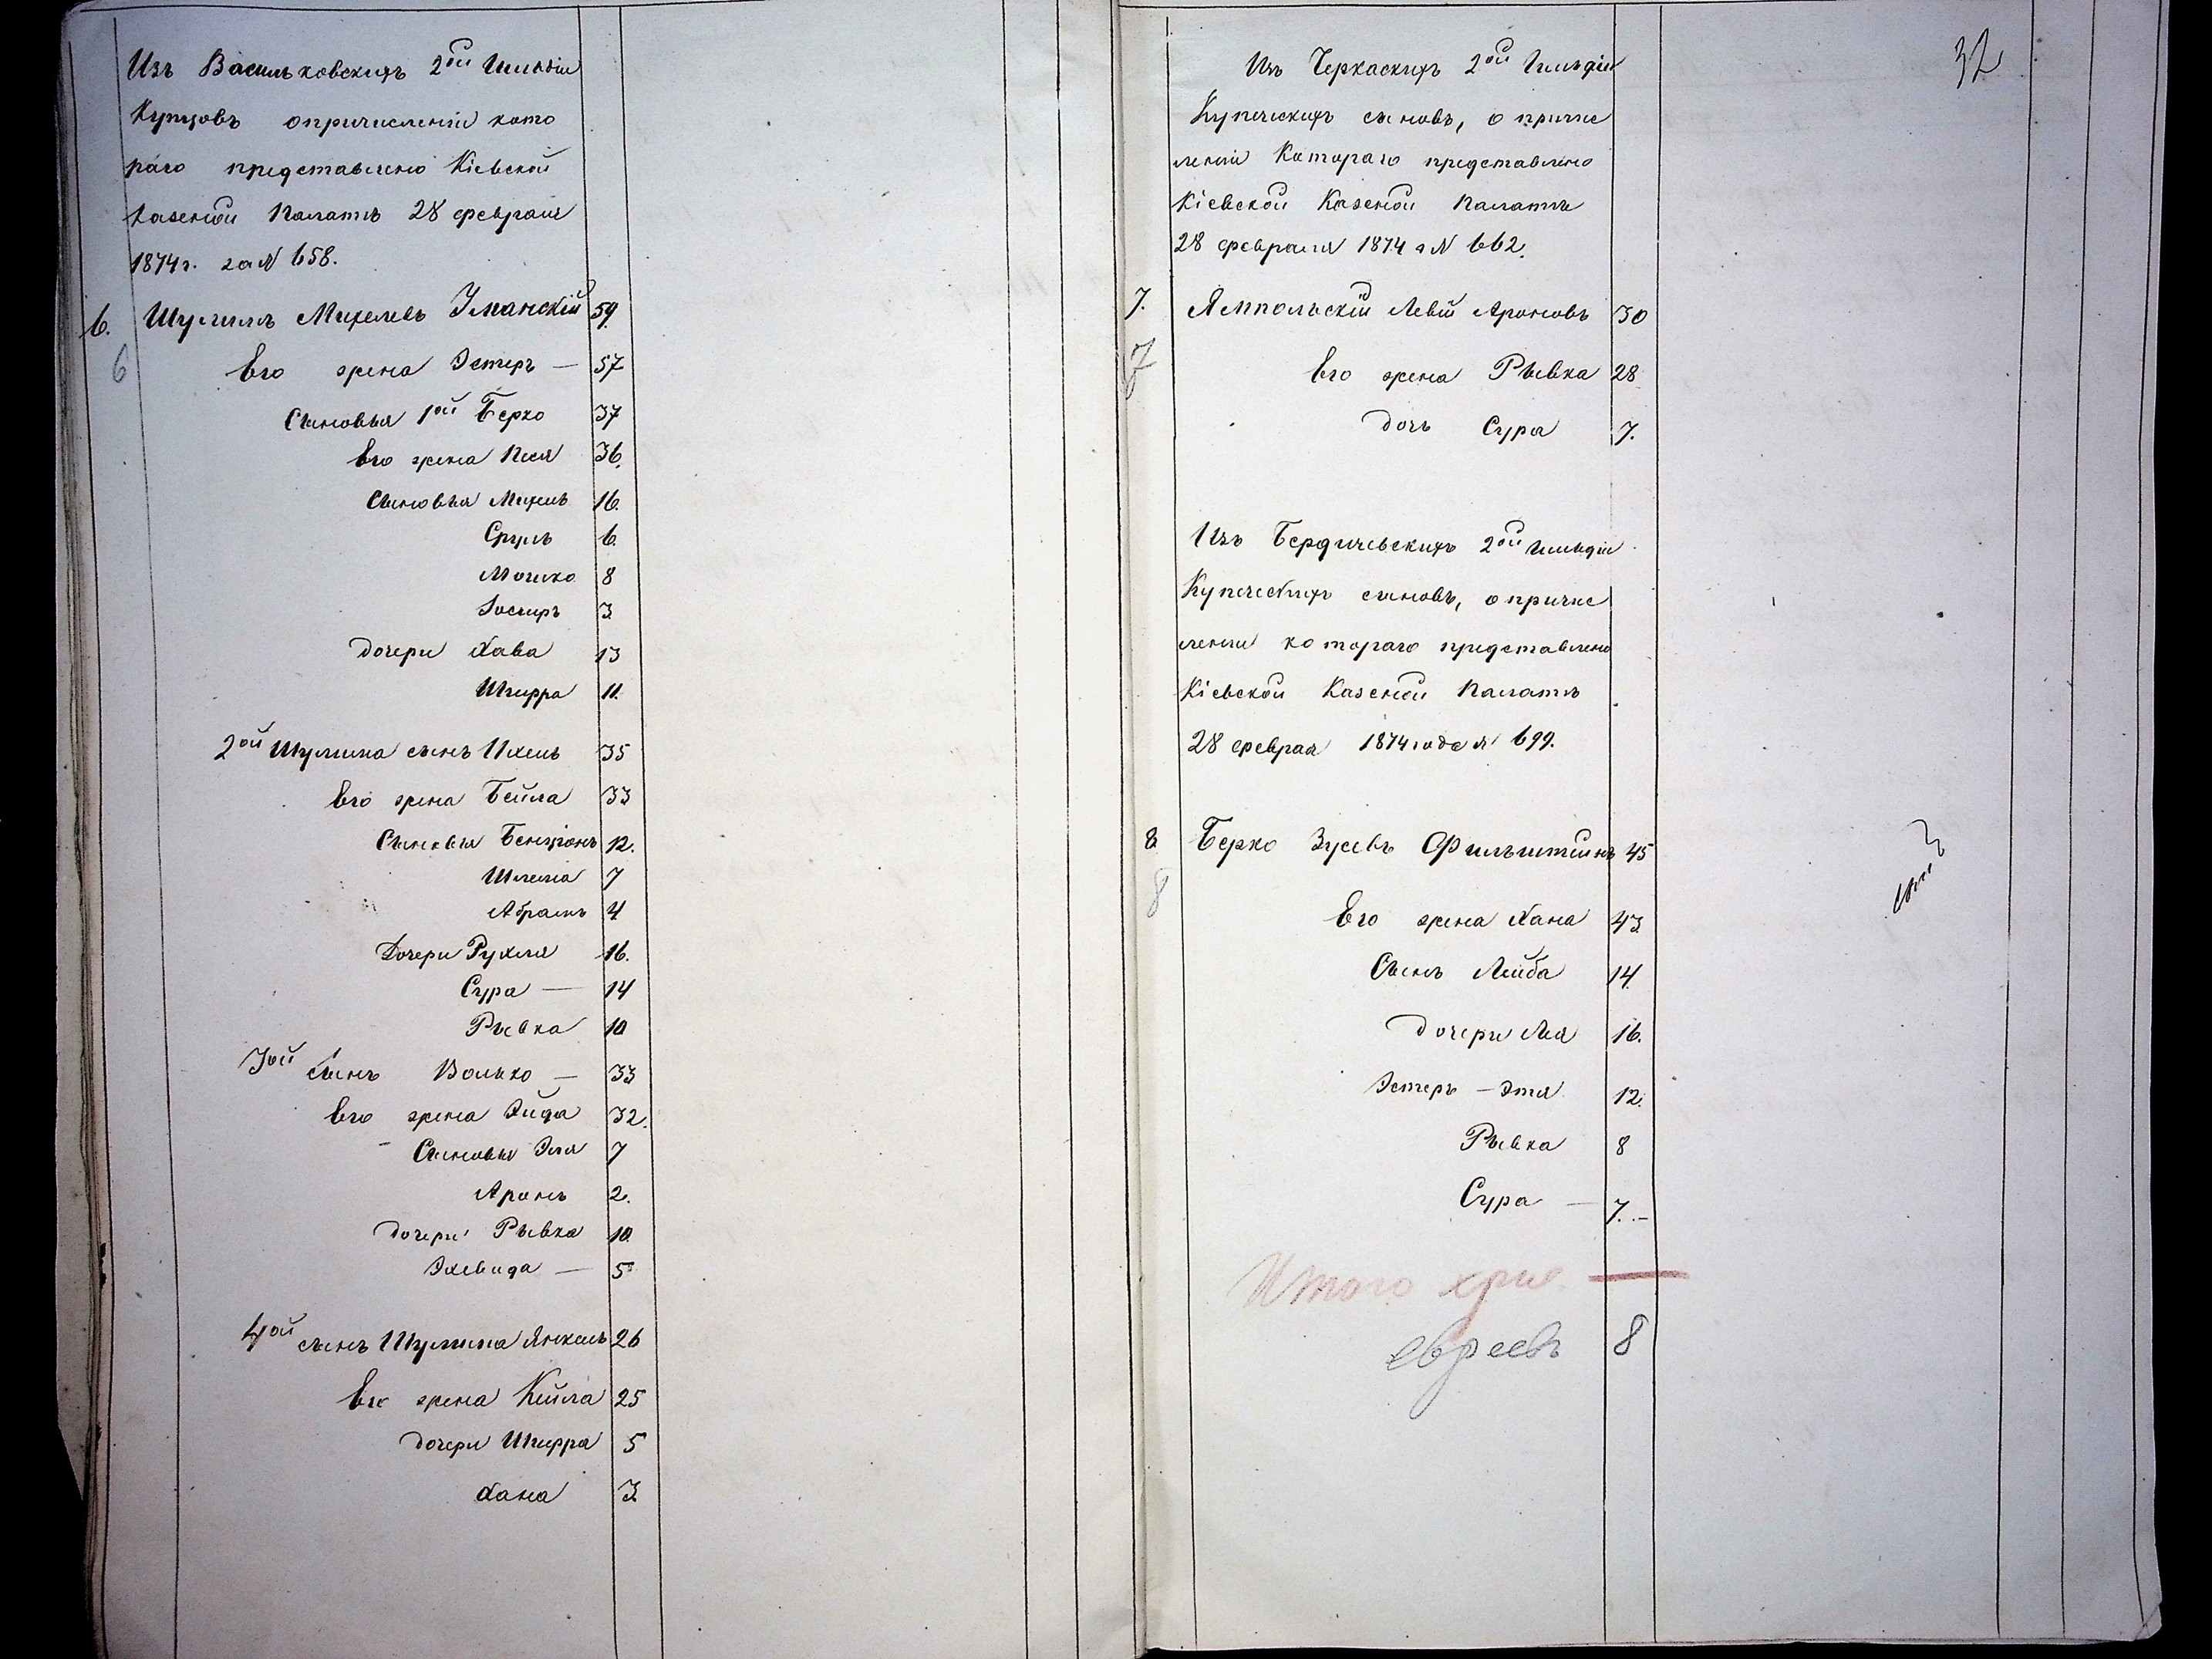 Изъ Васильковскихъ 2ой Гильдіи
Купцовъ опричисленіи кото
раго представлено Кіевской
Казеной Палатѣ 28 февраля
1874г. за № 658.
6. Шулимъ Михелевъ Уманскій 59.
6
Его жена Эстеръ — 57
Сыновья 1ой Берко 37
Его жена Песя 36.
Сыновья Михель 16.
Сруль 6.
Мошко 8
Іосиръ 3
дочери Хава 13
Шифра 11.
2ой Шулима сынъ Ихель 35
Его жена Бейла 33
Сыновья Бенціонъ 12.
Шлема 7
Абрамъ 4
Дочери Рухля 16.
Сура — 14
Рывка 10
3ой Сынъ Волько — 33
Его жена Эйда 32.
Сыновья Эля 7
Аронъ 2.
дочери Рывка 10.
Эхевида — 5
4ой сынъ Шулима Янкель 26
Его жена Кейла 25
дочери Шифра 5
Хана 3
32
Изъ Черкаскихъ 2ой Гильдіи
Купеческихъ сыновъ, о причис
леніи Котораго представлено
Кіевской Казеной Палатѣ
28 февраля 1874 г № 662.
7. Ямпольскій Левій Ароновъ 30
7
Его жена Рывка 28
дочь Сура 7.
Изъ Бердичевскихъ 2ой Гильдіи
Купеческихъ сыновъ, о причис
леніи котораго представлено
Кіевской Казеной Палатѣ
28 феврая 1874 года № 699.
8. Берко Зусевъ Фильштейнъ 45
8
Его жена Хана 43
Сынъ Лейба 14
дочери Лея 16.
Эстеръ — Этя 12.
Рывка 8
Сура — 7. —
Итого хрис. —
евреевъ 8